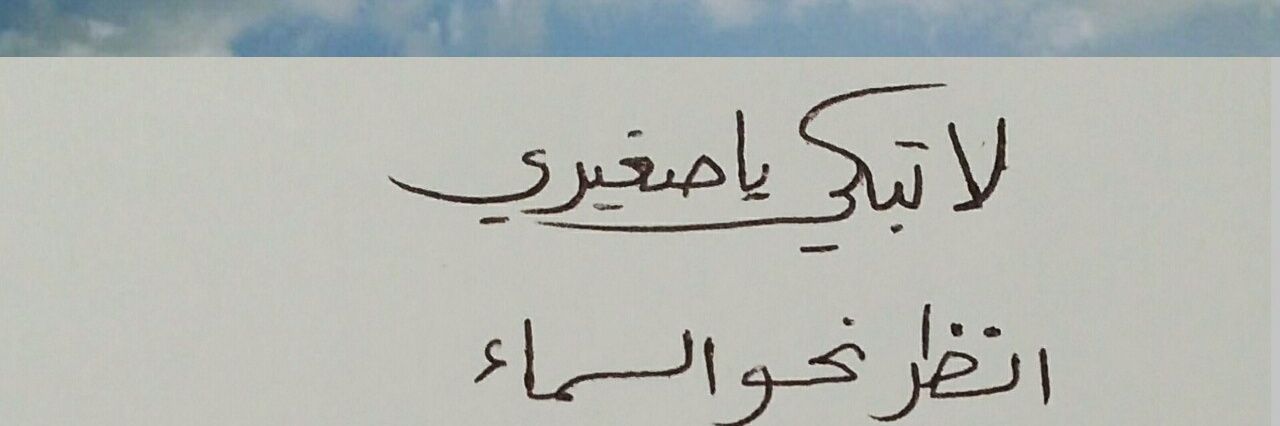 لا تبكي يا صغيري
انظر نحو السماء